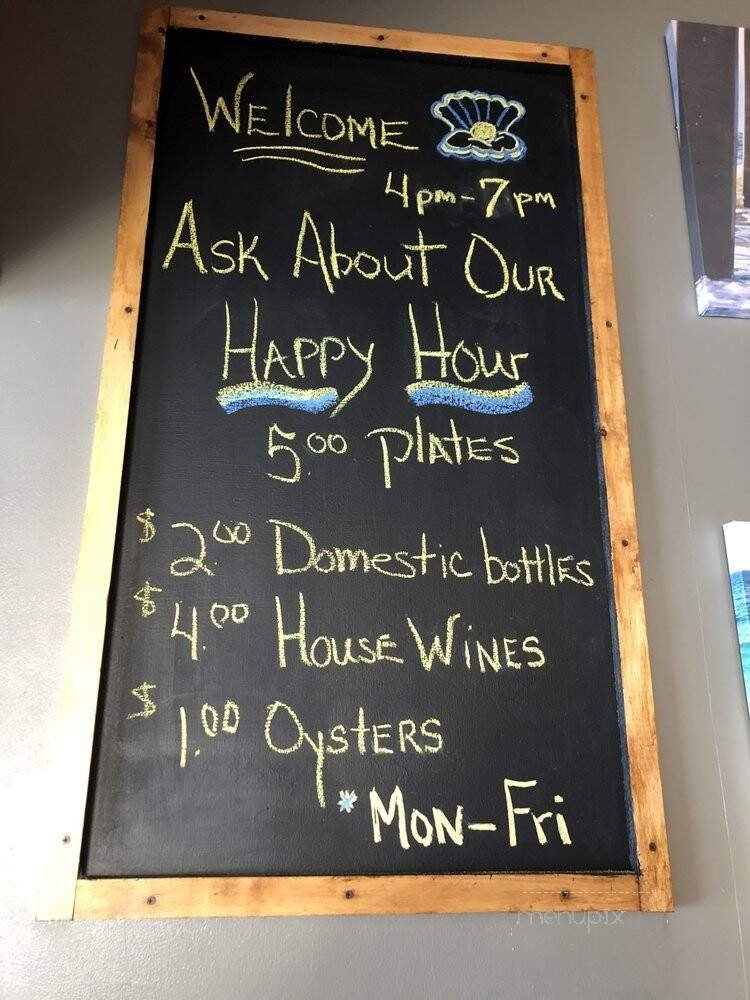 WElCOME
4pm-7pm
Ask About Our
HAPPy Hour
5.00 plates
$ 2.00 Domestic bottles
$ 4.00 House Wines
$ 1.00 Oysters
* Mon-Fri
menupix